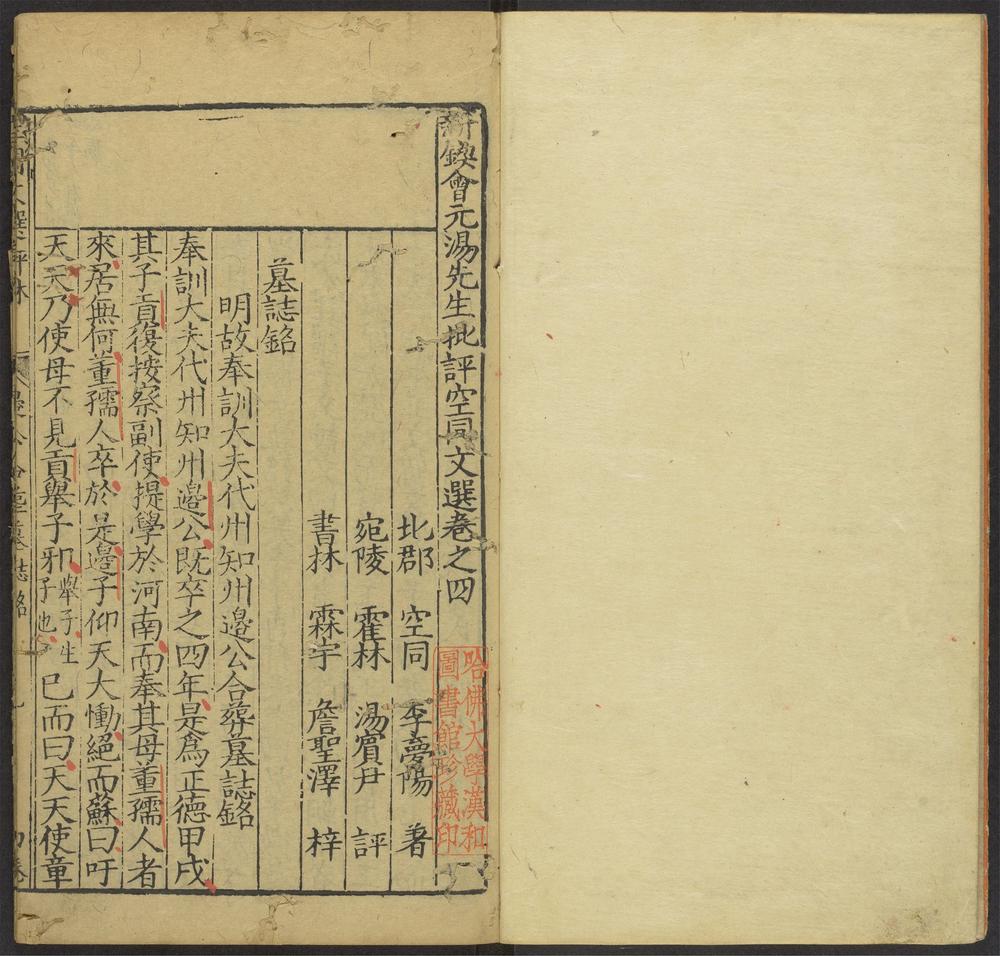 新鍥會元湯先生批評空同文選卷之四
北郡 空同 李夢陽 著
宛陵 霍林 湯賓尹 評
書林 霖宇 詹聖澤 梓
墓誌銘
明故奉訓大夫代州知州邉公合葬墓誌銘
奉訓大夫代州知州邉公既卒之四年是爲正德甲戌
其子貢復按察副使提學於河南而奉其母董孺人者
來居無何董孺人卒於是邉子仰天大慟絕而蘇曰吁
天天乃使母不見貢舉子邪舉子生子也已而曰天天使童
哈佛大學漢和
圖書館珍藏印